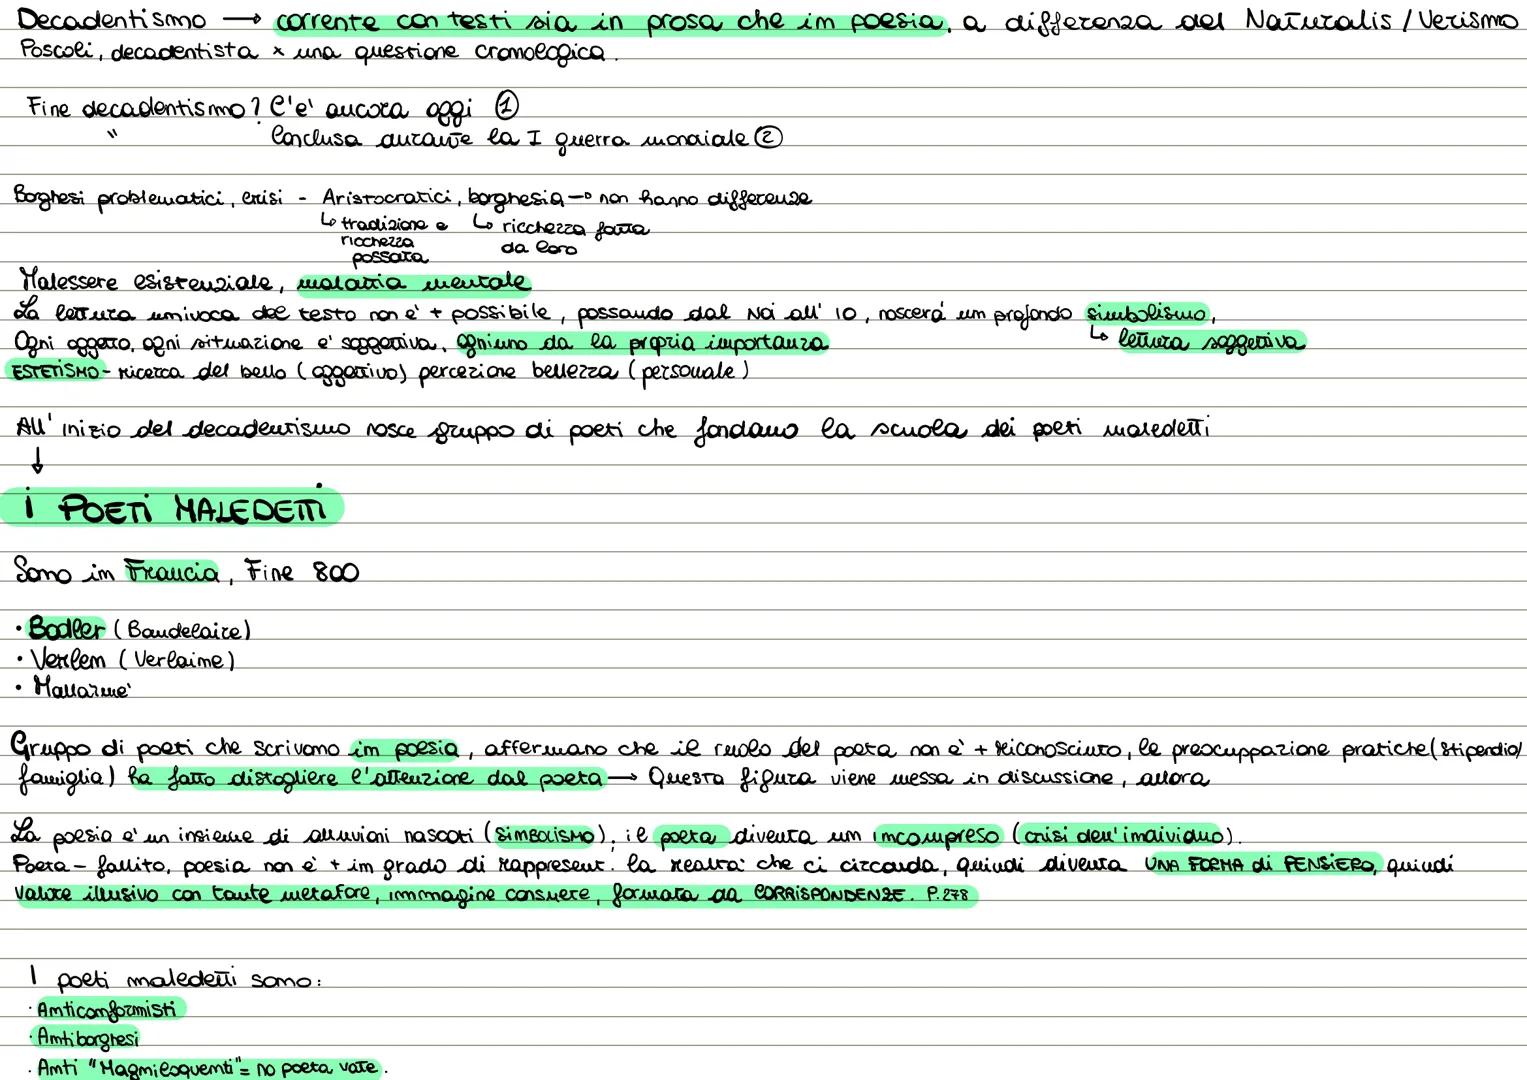 Decadentismo → corrente con testi sia in prosa che in poesia, a differenza del Naturalis/Verismo
Pascoli, decadentista x una questione cronologica.
Fine decadentismo? C'e' ancora oggi ①
" Conclusa durante la I guerra mondiale ②
Borghesi problematici, crisi - Aristocratici, borghesia → non hanno differenze
↳ tradizione e ricchezza passata
↳ ricchezza fatta da loro
Malessere esistenziale, malattia mentale
La lettura univoca del testo non e' + possibile, passando dal Noi all' IO, nascerá un profondo simbolismo,
Ogni oggetto, ogni situazione e' soggettiva, ogniuno da la propria importanza ↳ lettura soggettiva
ESTETISMO - ricerca del bello (oggettivo) percezione bellezza (personale)
All' inizio del decadentismo nasce gruppo di poeti che fondano la scuola dei poeti maledetti
↓
i POETI MALEDETTI
Sono in Francia, Fine 800
· Bodler (Baudelaire)
· Verlen (Verlaine)
· Mallarme'
Gruppo di poeti che scrivono in poesia, affermano che il ruolo del poeta non è + riconosciuto, le preoccuppazione pratiche (stipendio/
famiglia) ha fatto distogliere l'attenzione dal poeta → Questa figura viene messa in discussione, allora
La poesia e' un insieme di alluvioni nascosti (SIMBOLISMO), il poeta diventa un incompreso (crisi dell'individuo).
Poeta - fallito, poesia non è + in grado di rappresent. la realta' che ci circonda, quindi diventa UNA FORMA di PENSIERO, quindi
valore illusivo con tante metafore, immagine consuere, formata da CORRISPONDENZE. P.278
I poeti maledetti sono:
· Anticonformisti
· Antiborghesi
· Anti "Magniloquenti" = no poeta vate.